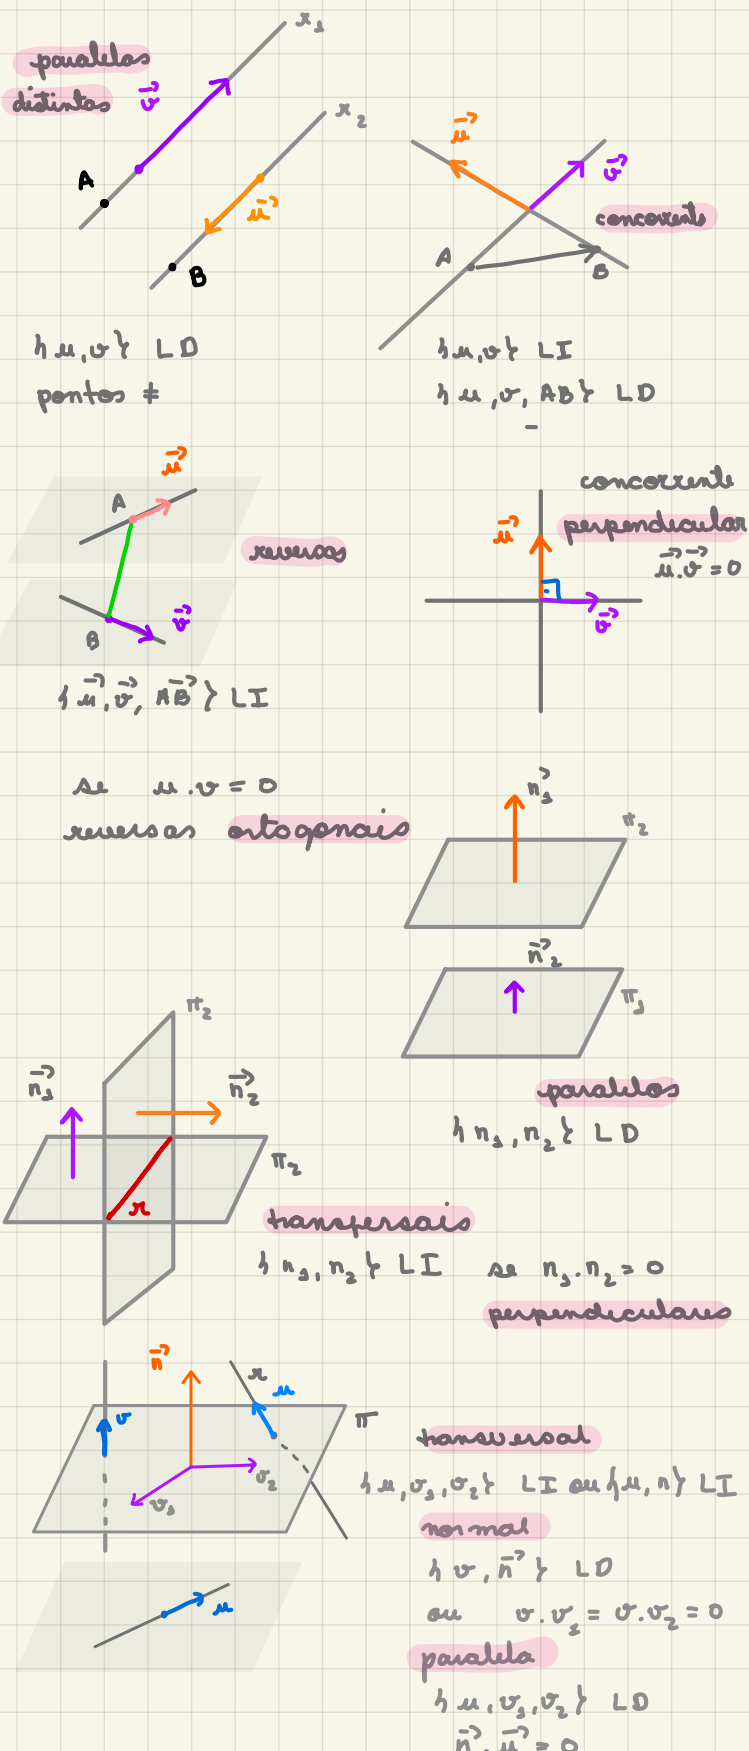 paralelas
distintas
v
x₁
x₂
A
u
B
{u,v} LD
pontos ≠
u
v
concorrente
A
B
{u,v} LI
{u,v,AB} LD
u
A
reversas
B
v
{u,v,AB} LI
concorrente
perpendicular
u
u.v=0
v
se u.v=0
reversas ortogonais
n₁
π₂
n₂
π₁
paralelos
{n₁,n₂} LD
π₂
n₁
n₂
π₂
r
transversais
{n₁,n₂} LI se n₁.n₂=0
perpendiculares
n
r
u
v
π
v₂
v₁
transversal
{u,v₁,v₂} LI ou {u,n} LI
normal
{v,n} LD
ou v.v₁=v.v₂=0
u
paralela
{u,v₁,v₂} LD
n.u=0